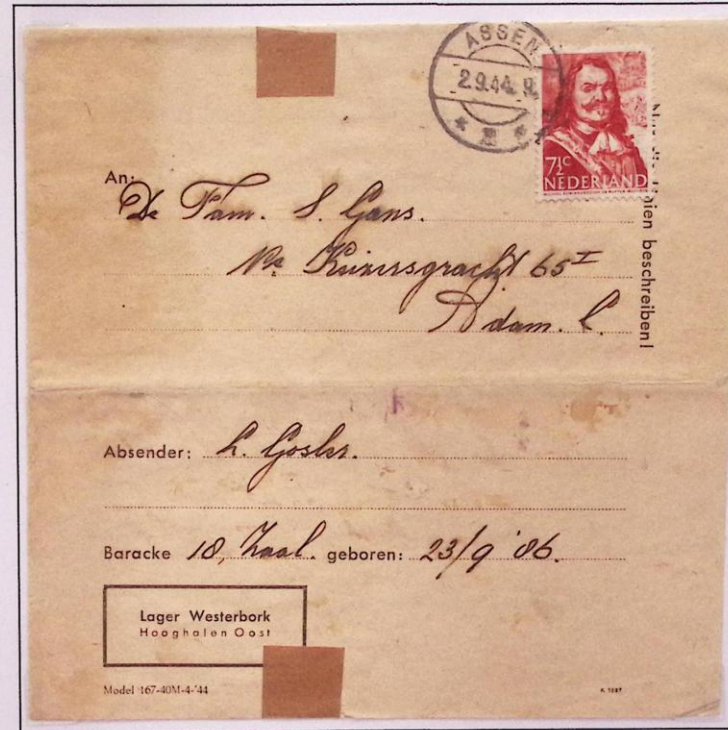 ASSEN
2.9.44. 9.
7½ C
NEDERLAND
Nur die Linien beschreiben!
An:
De Fam. S. Gans.
Nwe Keizersgracht 65 I
A'dam. C.
Absender: L. Gosler.
Baracke 18, Zaal. geboren: 23/9 '86.
Lager Westerbork
Hooghalen Oost
Model 167-40M-4-'44